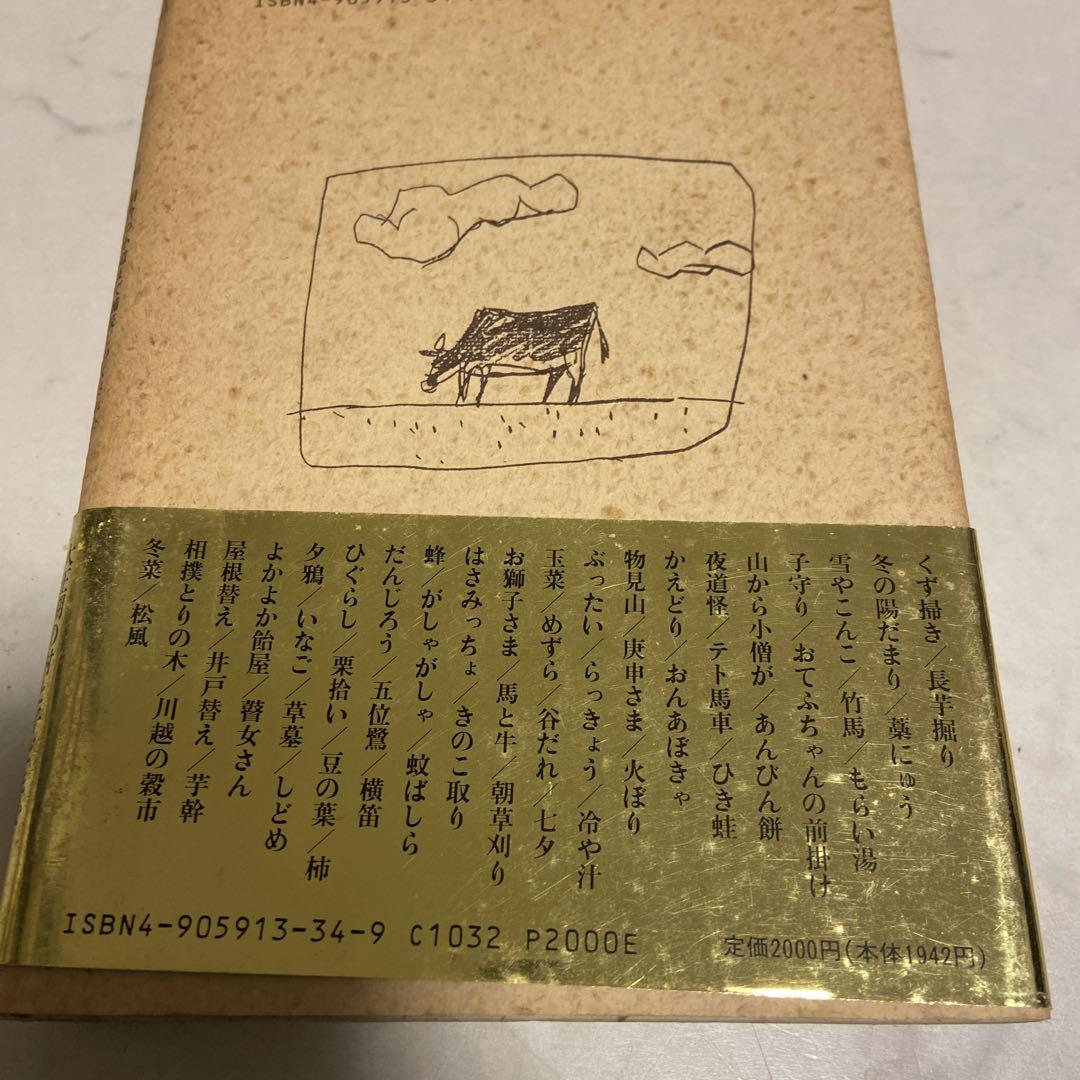 ISBN4-905913-34-
くず掃き/長芋掘り
冬の陽だまり/藁にゅう
雪やこんこ/竹馬/もらい湯
子守り/おてふちゃんの前掛け
山から小僧が/あんぴん餅
夜道怪/テト馬車/ひき蛙
かえどり/おんあぼきゃ
物見山/庚申さま/火ぼり
ぶったい/らっきょう/冷や汁
玉菜/めずら/谷だれ/七夕
お獅子さま/馬と牛/朝草刈り
はさみっちょ/きのこ取り
蜂/がしゃがしゃ/蚊ばしら
だんじろう/五位鷺/横笛
ひぐらし/栗拾い/豆の葉/柿
夕鴉/いなご/草墓/しどめ
よかよか飴屋/瞽女さん
屋根替え/井戸替え/芋幹
相撲とりの木/川越の穀市
冬菜/松風
ISBN4-905913-34-9 C1032 P2000E
定価2000円(本体1942円)